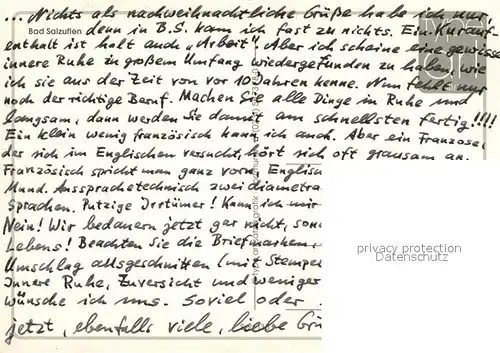 ... Nichts als nachweihnachtliche Grüße habe ich nur,
Bad Salzuflen
denn in B.S. kam ich fast zu nichts. Ein Kurauf-
enthalt ist halt auch "Arbeit". Aber ich scheine eine gewisse
innere Ruhe zu großem Umfang wiedergefunden zu haben, wie
ich sie aus der Zeit von vor 10 Jahren kenne. Nun fehlt nur
noch der richtige Beruf. Machen Sie alle Dinge in Ruhe und
langsam, dann werden Sie damit am schnellsten fertig!!!!
Ein klein wenig französisch kann ich auch. Aber ein Franzose,
der sich im Englischen versucht, hört sich oft grausam an.
Französisch spricht man ganz vorn, Englisc
Mund. Aussprachetechnisch zwei diametra
Sprachen. Putzige Irrtümer! Kann ich mir
Nein! Wir bedauern jetzt gar nicht, son
Lebens! Beachten Sie die Briefmarken,
Umschlag ausgeschnitten (mit Stempe
Innere Ruhe, Zuversicht und weniger
wünsche ich uns. Soviel oder
jetzt, ebenfalls viele, liebe Grü
privacy protection
Datenschutz